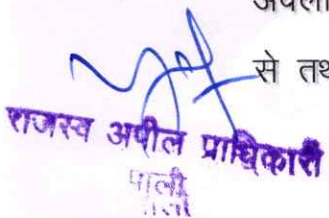 अवलो
से तथ
राजस्व अपील प्राधिकारी
पाली